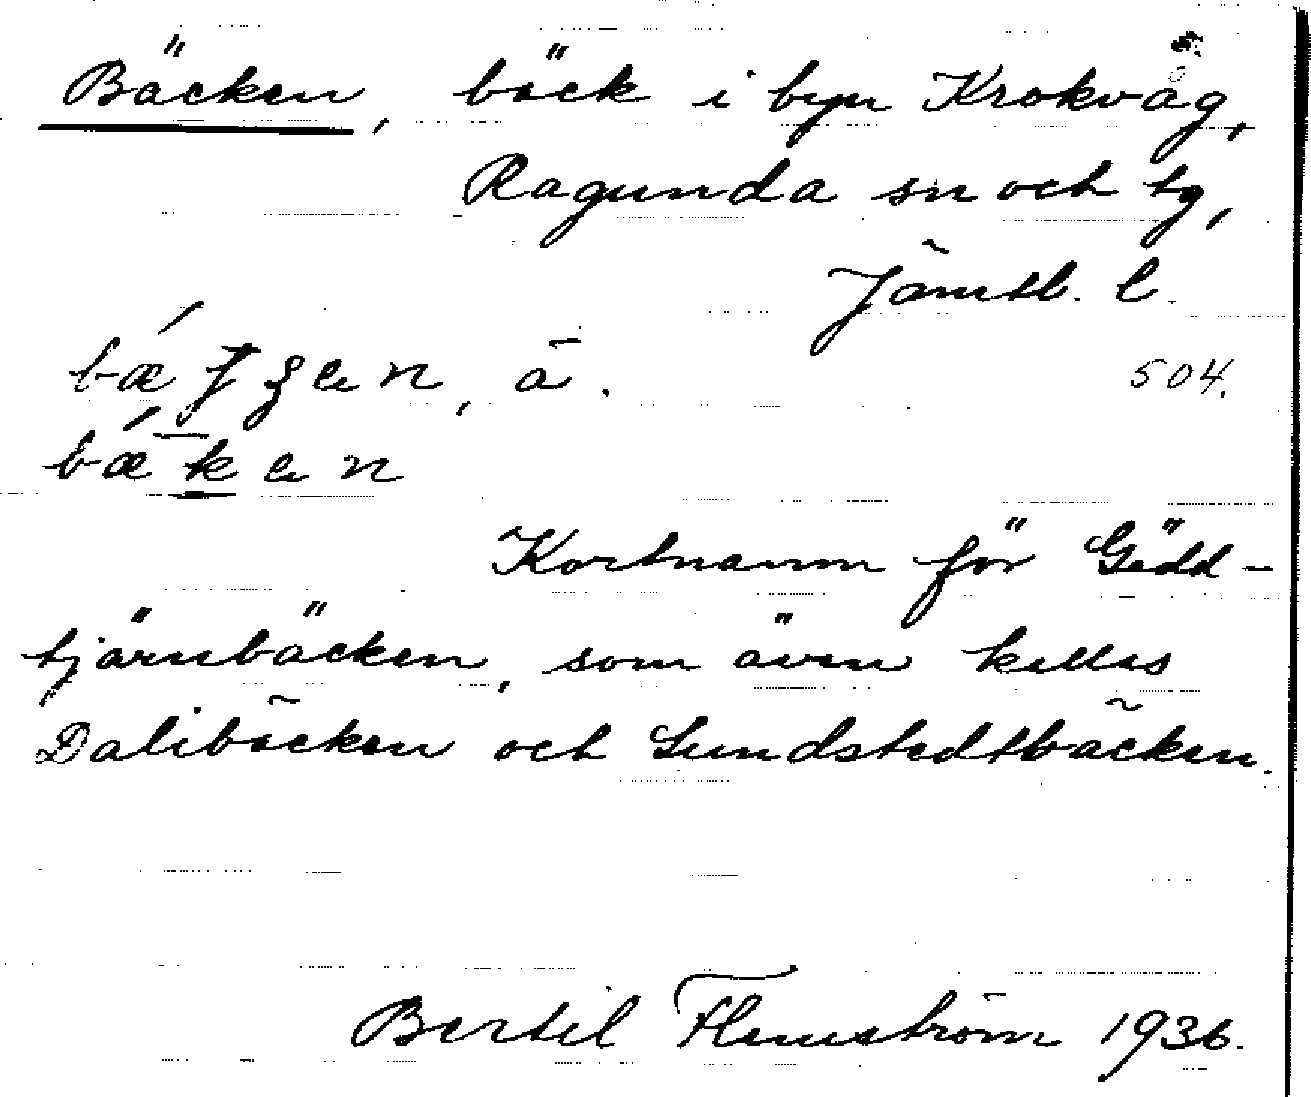 Bäcken, bäck i byn Krokvåg,
Ragunda sn och tg,
Jämtl. l.
504.
bákan
Kortnamn för Gädd-
tjärnbäcken, som även kallas
Dalibäcken och Sundstedtbäcken.
Bertil Flemström 1936.